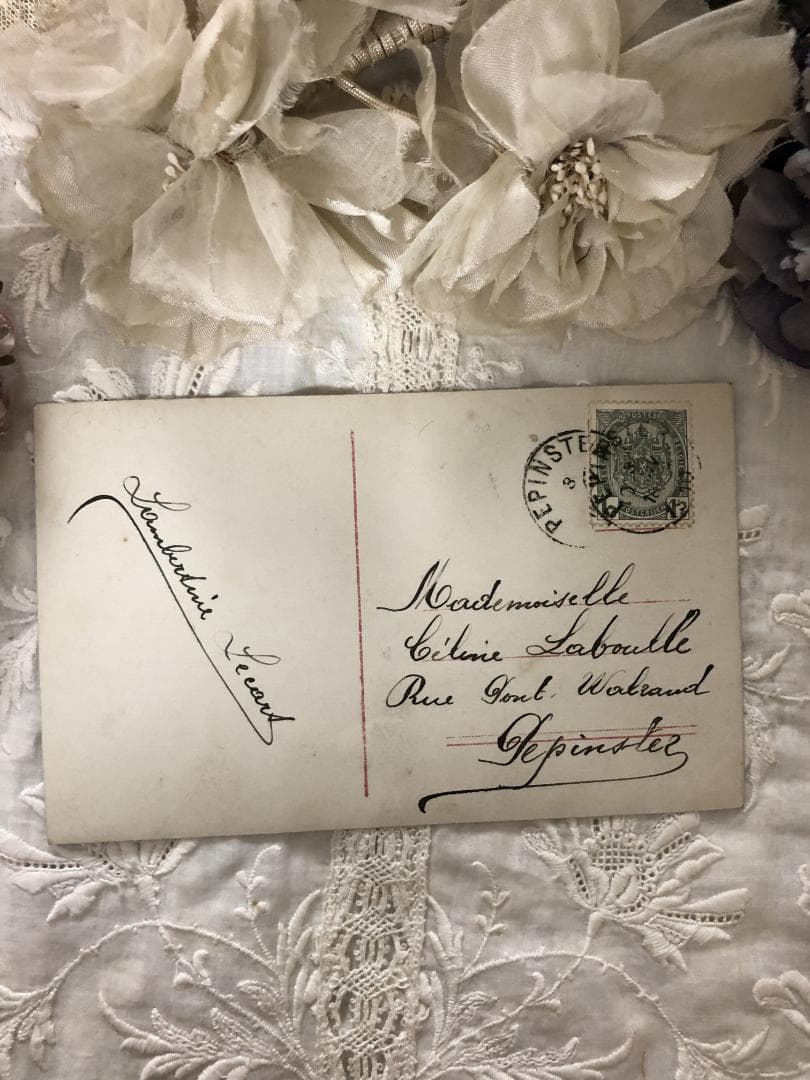 Lambertine Lecart
PEPINSTER
8
PEPINS
POSTES
POSTERIJEN
1
Mademoiselle
Céline Laboulle
Rue Pont. Walrand
Pepinster